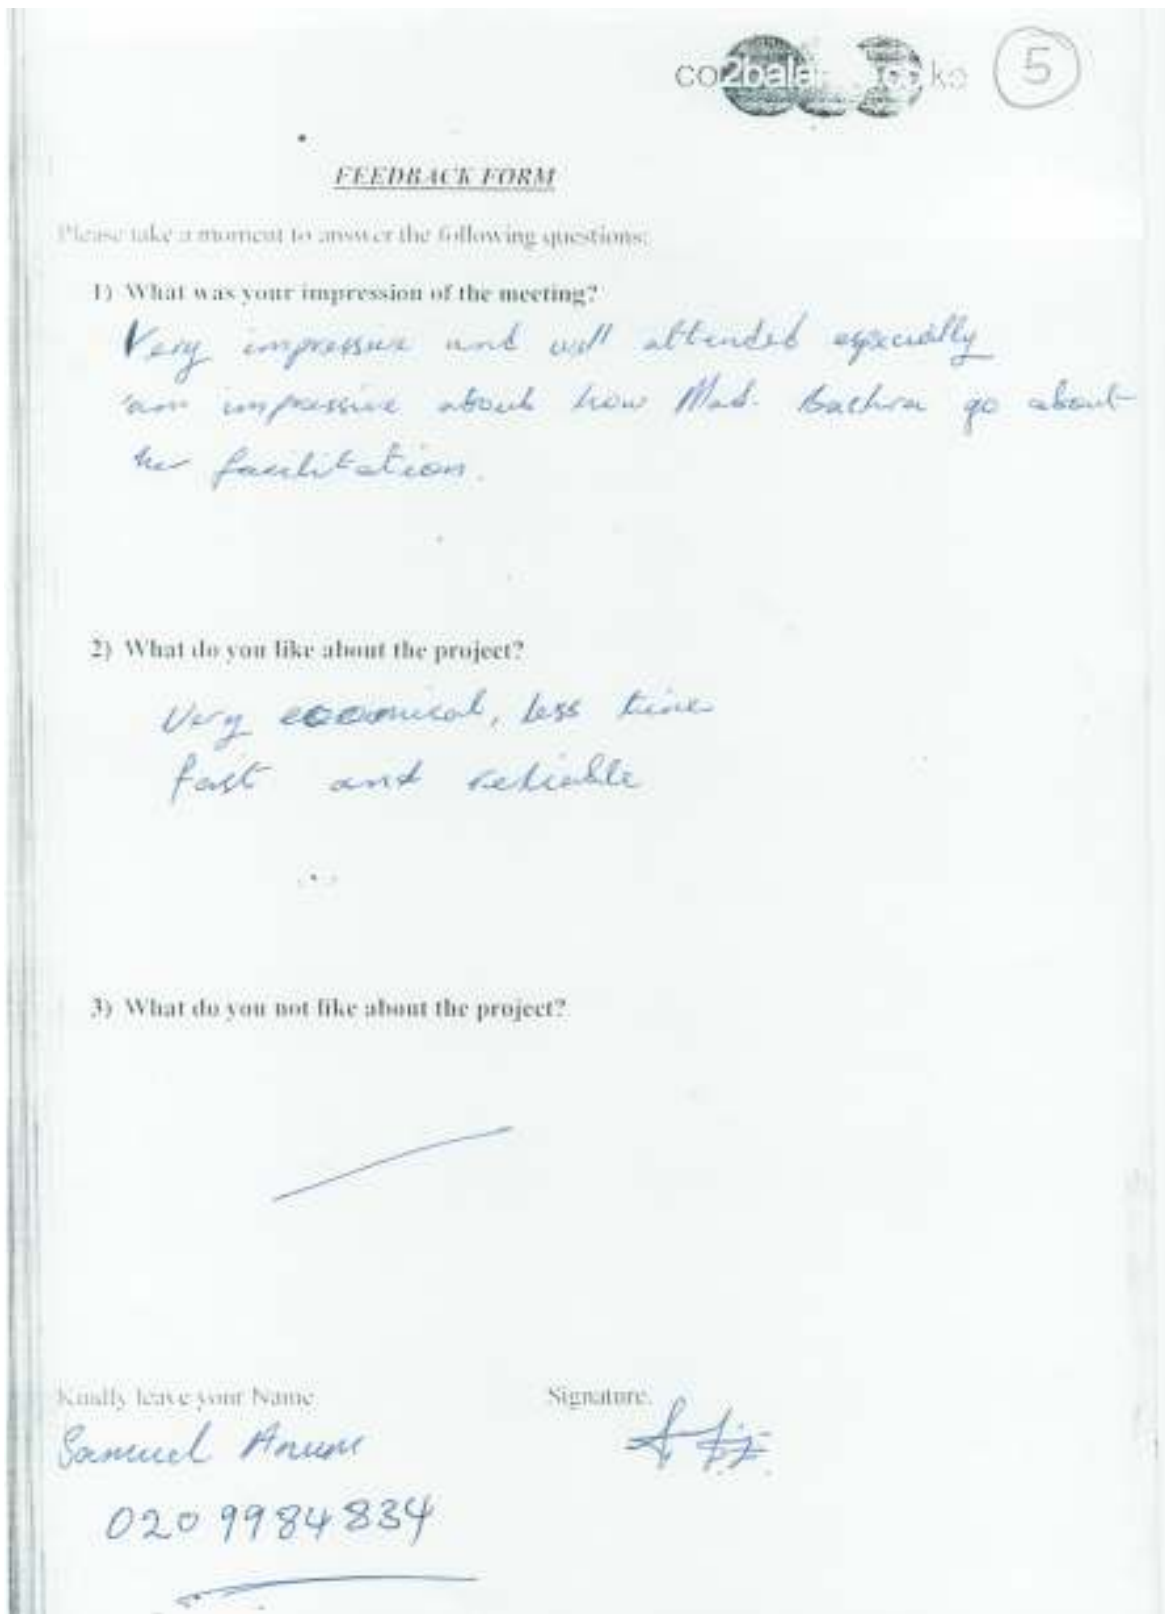 co2bala
5
FEEDBACK FORM
Please take a moment to answer the following questions:
1) What was your impression of the meeting?
Very impressive and well attended especially
'am impressive about how Mad. go about
her facilitation.
2) What do you like about the project?
Very less time
fast and reliable
3) What do you not like about the project?
Kindly leave your Name
Signature.
Samuel
020 9984834